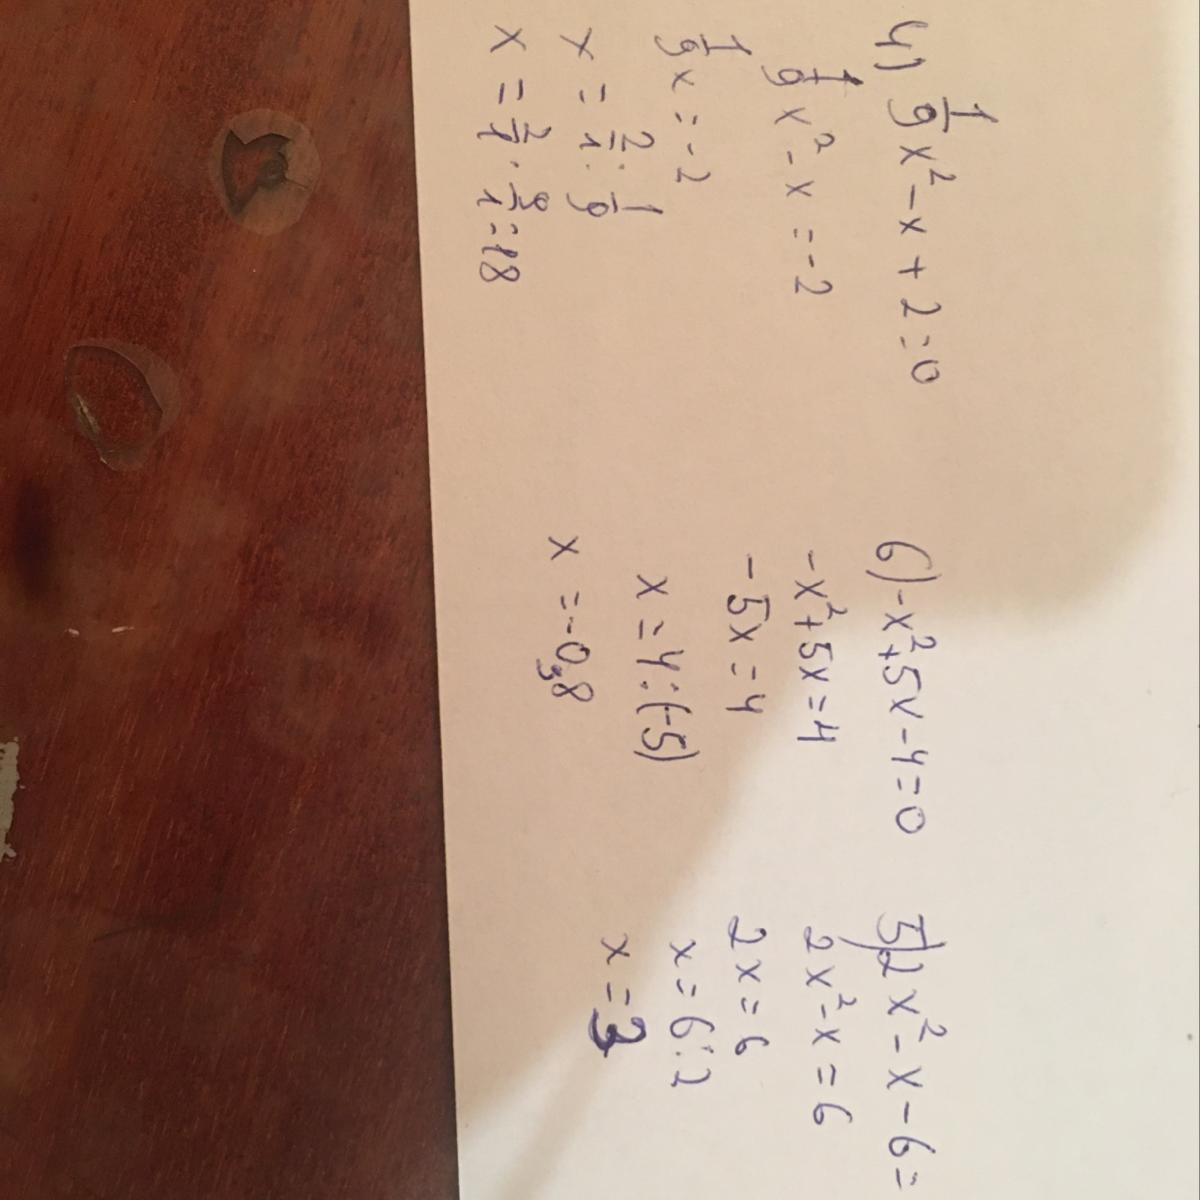 4) 1/9 x² - x + 2 = 0
1/9 x² - x = -2
1/9 x = -2
x = 2/1 : 1/9
x = 2/1 · 9/1 = 18
6) -x² + 5x - 4 = 0
-x² + 5x = 4
-5x = 4
x = 4 : (-5)
x = -0,8
5) 2x² - x - 6 =
2x² - x = 6
2x = 6
x = 6 : 2
x = 3